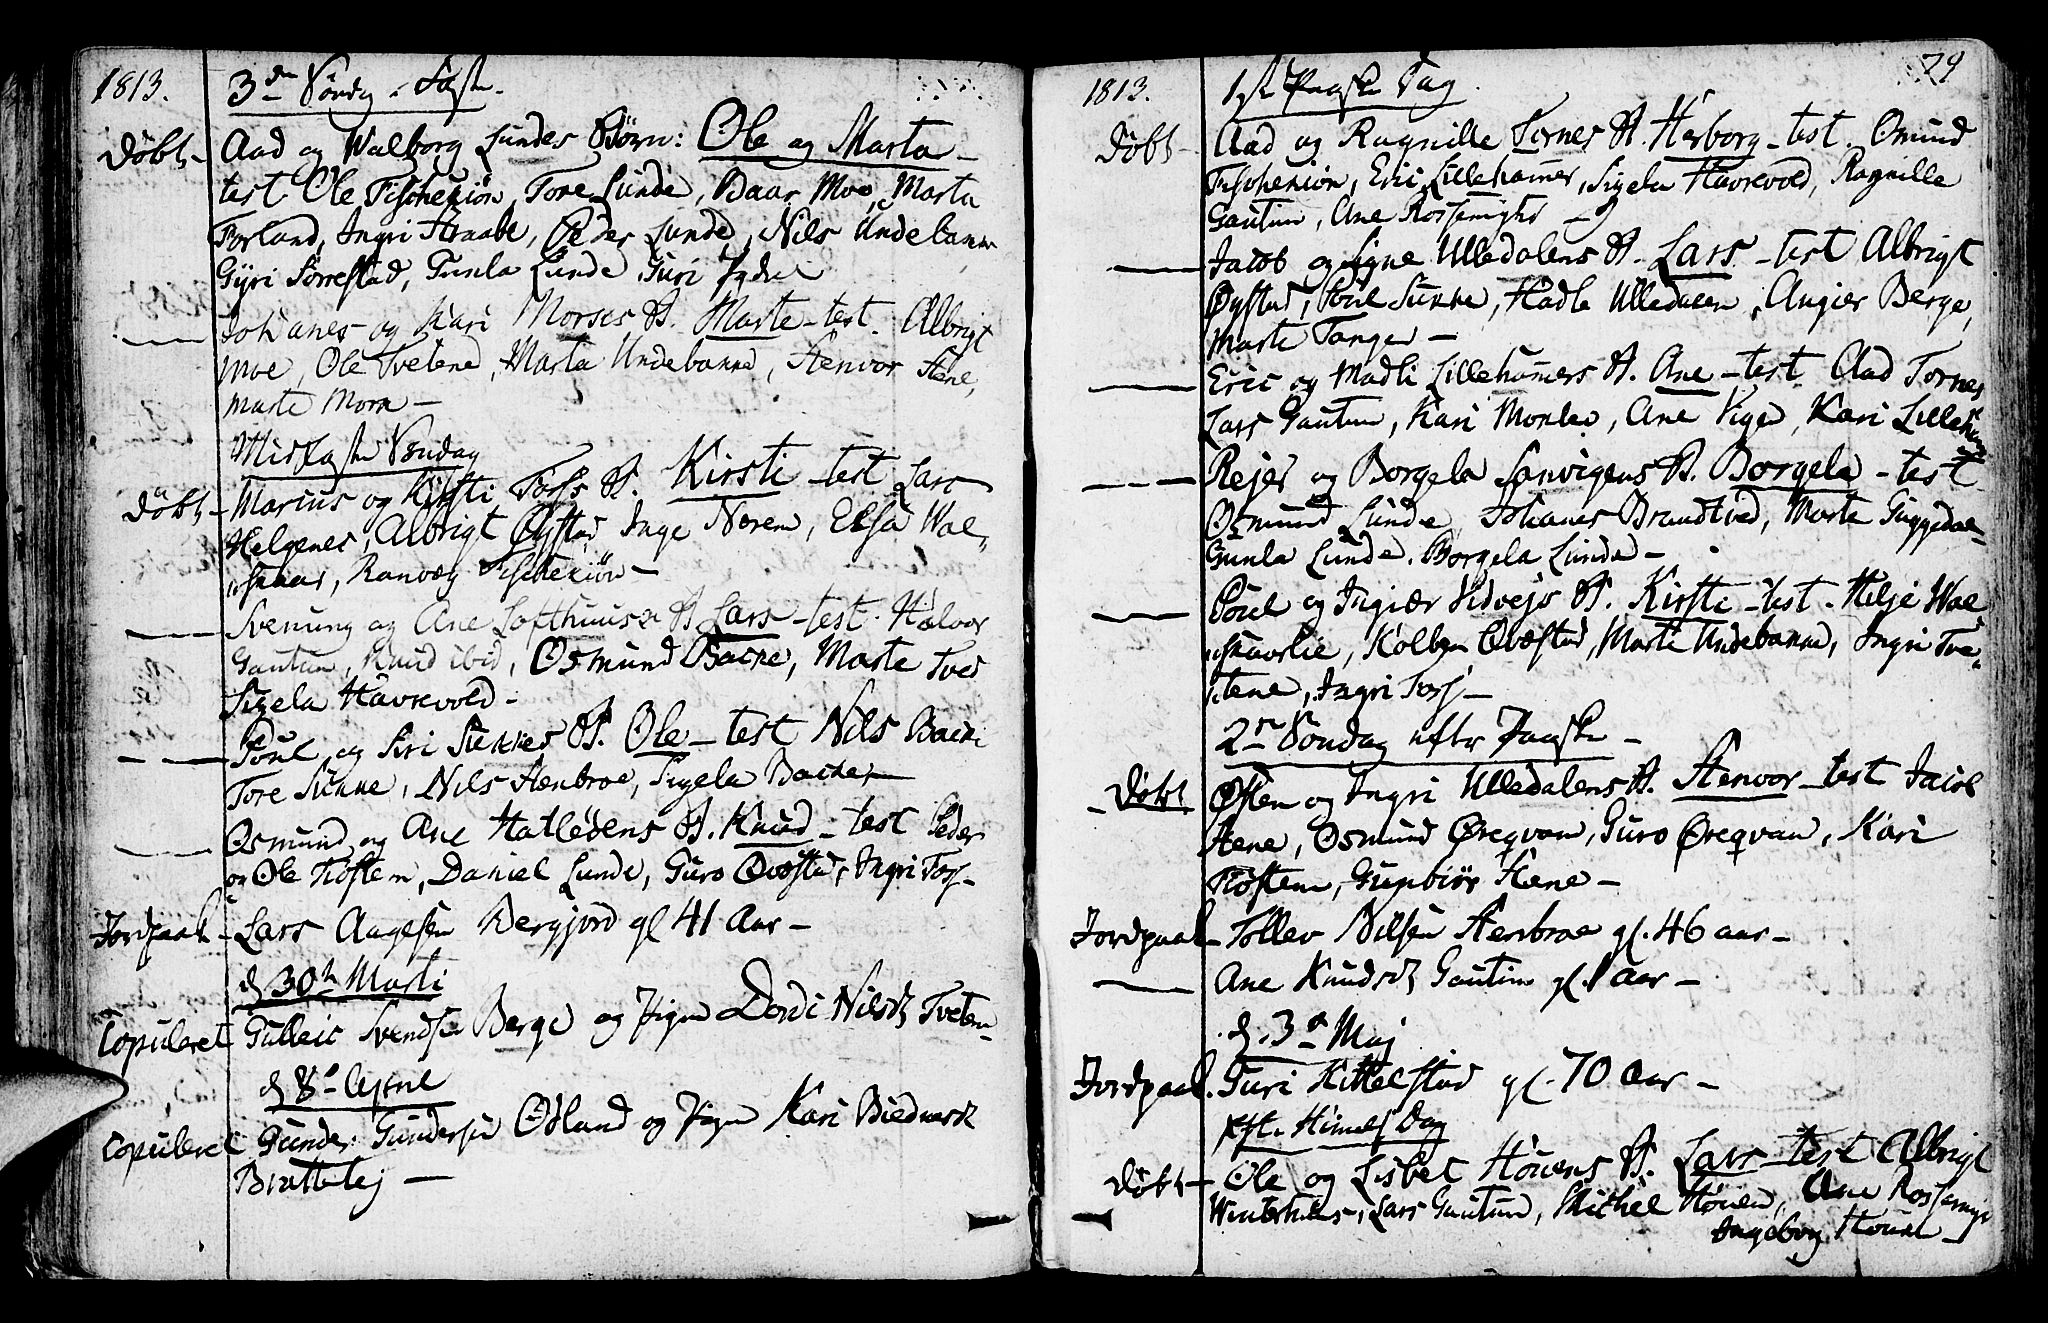 1813.
3die Søndag i Faste.
Døbt - Aad og Walborg Lundes Børn: Ole og Marta -
test Ole Fischekiön, Tore Lunde, Baar Moe, Marta
Forland, Ingri Straabe, Peder Lunde, Nils Undebanne
Gyri Sørrestad, Gunla Lunde, Guri
Johanes og Kari Morses B. Marte - test. Albrigt
Moe, Ole Tvetene, Marta Undebanne, Stenvor Stene,
Marte Morn -
Midfaste Søndag
Døbt - Marius og Kirsti Foss B. Kirsti - test Lars
Helgenes, Albrigt Øystad, Inge Noren, Elsa Wal„
„skaar, Ranvæg Fischekiön -
Svenung og Ane Lofthuuses B. Lars - test. Halvor
Gautun, Knud ibid, Osmund Backe, Marte Tved
Sigela Havrevold -
Poul og Siri Sukkes B. Ole - test Nils Backe
Tore Sukke, Nils Stenbroe, Sigela Backe -
Osmund og Ane Hatlödens B. Knud - test Peder
og Ole Tiöstem, Daniel Lunde, Guro Ovæstad, Ingri Foss -
Jordpaak. - Lars Aagesen Bergjord gl 41 Aar -
d 30te Marti
Copuleret Gulleic Svendsen Berge og Pigen Dordi Nilsd. Tveten -
d 8de April
Copuleret Gunder Gundersen Østland og Pigen Kari Biednersd.
Brattetej -
79
1813.
1ste Paaske Dag
Døbt - Aad og Ragnille Tornes B. Herborg - test. Omund
Fischekiön, Eric Lillehamer, Sigela Havrevold, Ragnille
Gautun, Ane Rossemigto -
Jacob og Signe Ulledalens B. Lars - test Albrigt
Øystad, Poul Sukke, Hadle Ulledalen, Angier Berge,
Marte Tange -
Eric og Madli Lillehamers B. Ane - test. Aad Tornes
Lars Gautun, Kari Monle, Ane Vige, Kari Lillehamer
Rejer og Borgela Sanvigens B. Borgela - test
Osmund Lunde, Johanes Brandtved, Marte Guggedal -
Gunla Lunde, Borgela Lunde -
Poul og Ingiær Vidvejs B. Kirsti - test. Helje Wal
„skaarlie, Kolben Ovæstad, Marte Undebanne, Ingri Tve„
„tene, Ingri Foss -
2den Søndag efter Paaske -
Døbt Østen og Ingri Ulledalens B. Stenvor - test Jacob
Stene, Osmund Øreqvam, Guro Øreqvam, Kari
Tiöstem, Gunbiör Stene -
Jordpaak. - Tollev Nilsen Stenbroe gl. 46 aar -
Ane Knudsd. Gautun gl. 1 aar -
d. 3de Maj
Jordpaak. Guri Kittelstad gl. 70 Aar -
Himels Dag
Døbt - Ole og Lisbet Houens B. Lars - test Albrigt
Winterhus, Lars Gautun, Michel Houen, Ane Rossemig
Ingeborg Houen -